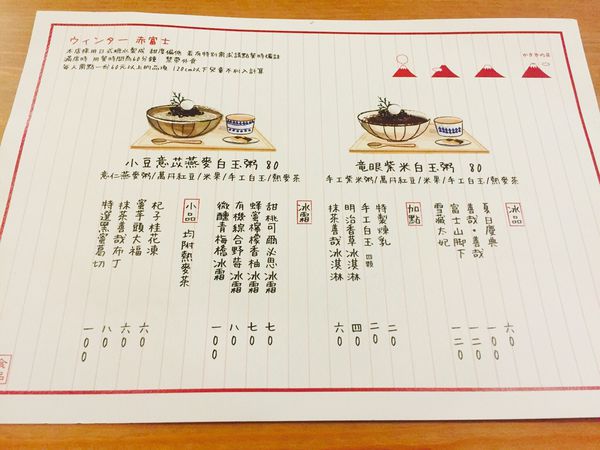 ウィンター 赤富士
本店採用日式糖水製成 甜度偏低 若有特別需求請點餐時備註
滿席時 用餐時間為60分鐘 禁帶外食
每人需點一份60元以上的品項 120cm以下兒童不列入計算
かき氷の日
小豆薏苡燕麥白玉粥 80
薏仁燕麥粥/萬丹紅豆/米果/手工白玉/熱麥茶
竜眼紫米白玉粥 80
手工紫米粥/萬丹紅豆/米果/手工白玉/熱麥茶
冰品
夏日慶典 六0
喜哉・善哉 一00
富士山脚下 一二0
雪藏太妃 一二0
加點
特製煉乳 二0
手工白玉 四顆 二0
明治香草冰淇淋 四0
抹茶善哉冰淇淋 六0
冰霜
甜桃可爾必思冰霜 七0
蜂蜜檸檬香柚冰霜 七0
有機綜合野莓冰霜 八0
微醺青梅橋冰霜 一00
小品 均附熱麥茶
杞子桂花凍 六0
蜜芋頭大福 六0
抹茶善哉布丁 八0
特選黑蜜葛切 一00
食品